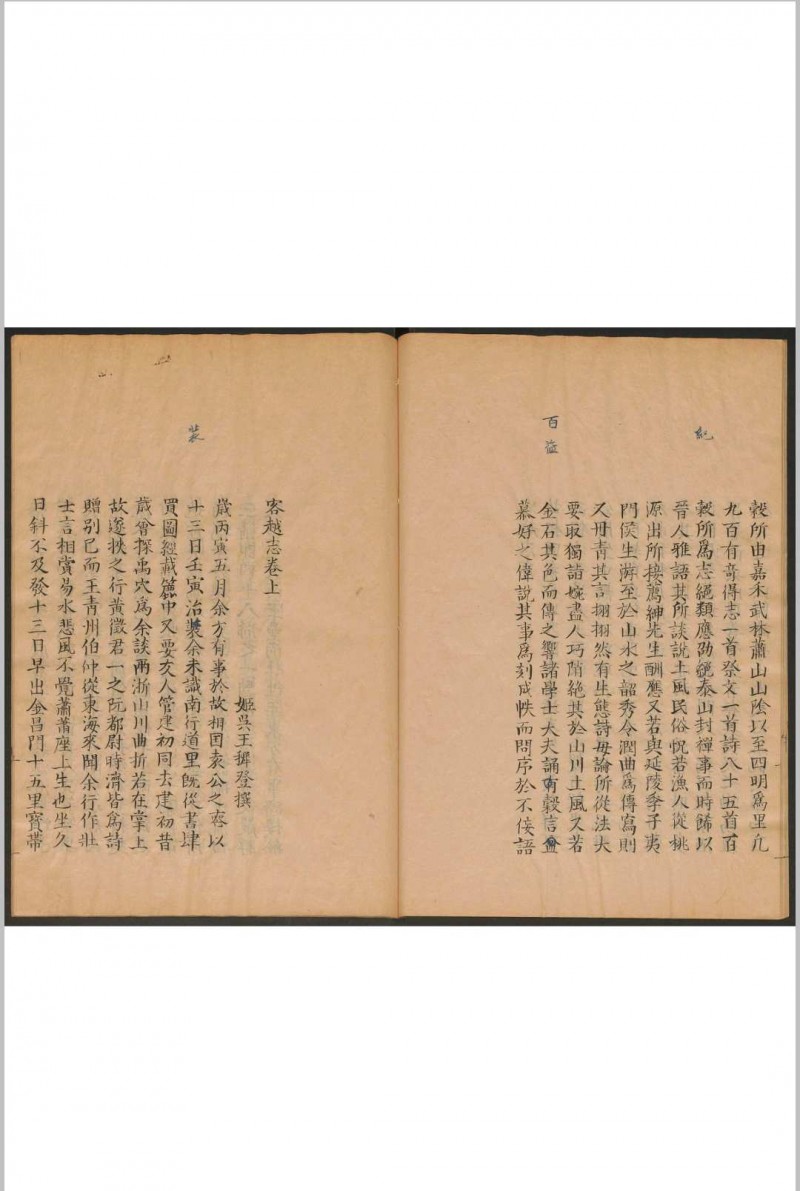 記
百盗
穀所由嘉禾武林蕭山山陰以至四明爲里凡
九百有奇得志一首祭文一首詩八十五首百
穀所爲志絕類應劭繞泰山封禪事而時歸以
晉人雅語其所談說土風民俗怳若漁人從桃
源出所接薦紳先生酬應又若與延陵季子夷
門侯生游至於山水之韶秀令潤曲爲傳寫則
又丹青其言栩栩然有生態詩毋論所從法大
要取獨詣婉盡人巧陗絕其於山川土風又若
金石其色而傳之響諸學士大夫誦百穀言僉
慕好之偉說其事爲刻成帙而問序於不佞語
裝
客越志卷上
姬吳王穉登撰
歲丙寅五月余方有事於故相國袁公之喪以
十三日壬寅治裝余未識南行道里旣從書肆
買圖經藏簏中又要友人管建初同去建初昔
歲曾探禹穴爲余談兩浙山川曲折若在掌上
故遂挾之行黃徵君一之阮都尉時濟皆爲詩
贈別已而王青州伯仲從東海來聞余行作壯
士言相賞易水悲風不覺蕭蕭座上生也坐久
日斜不及發十三日早出金昌門十五里寶帶